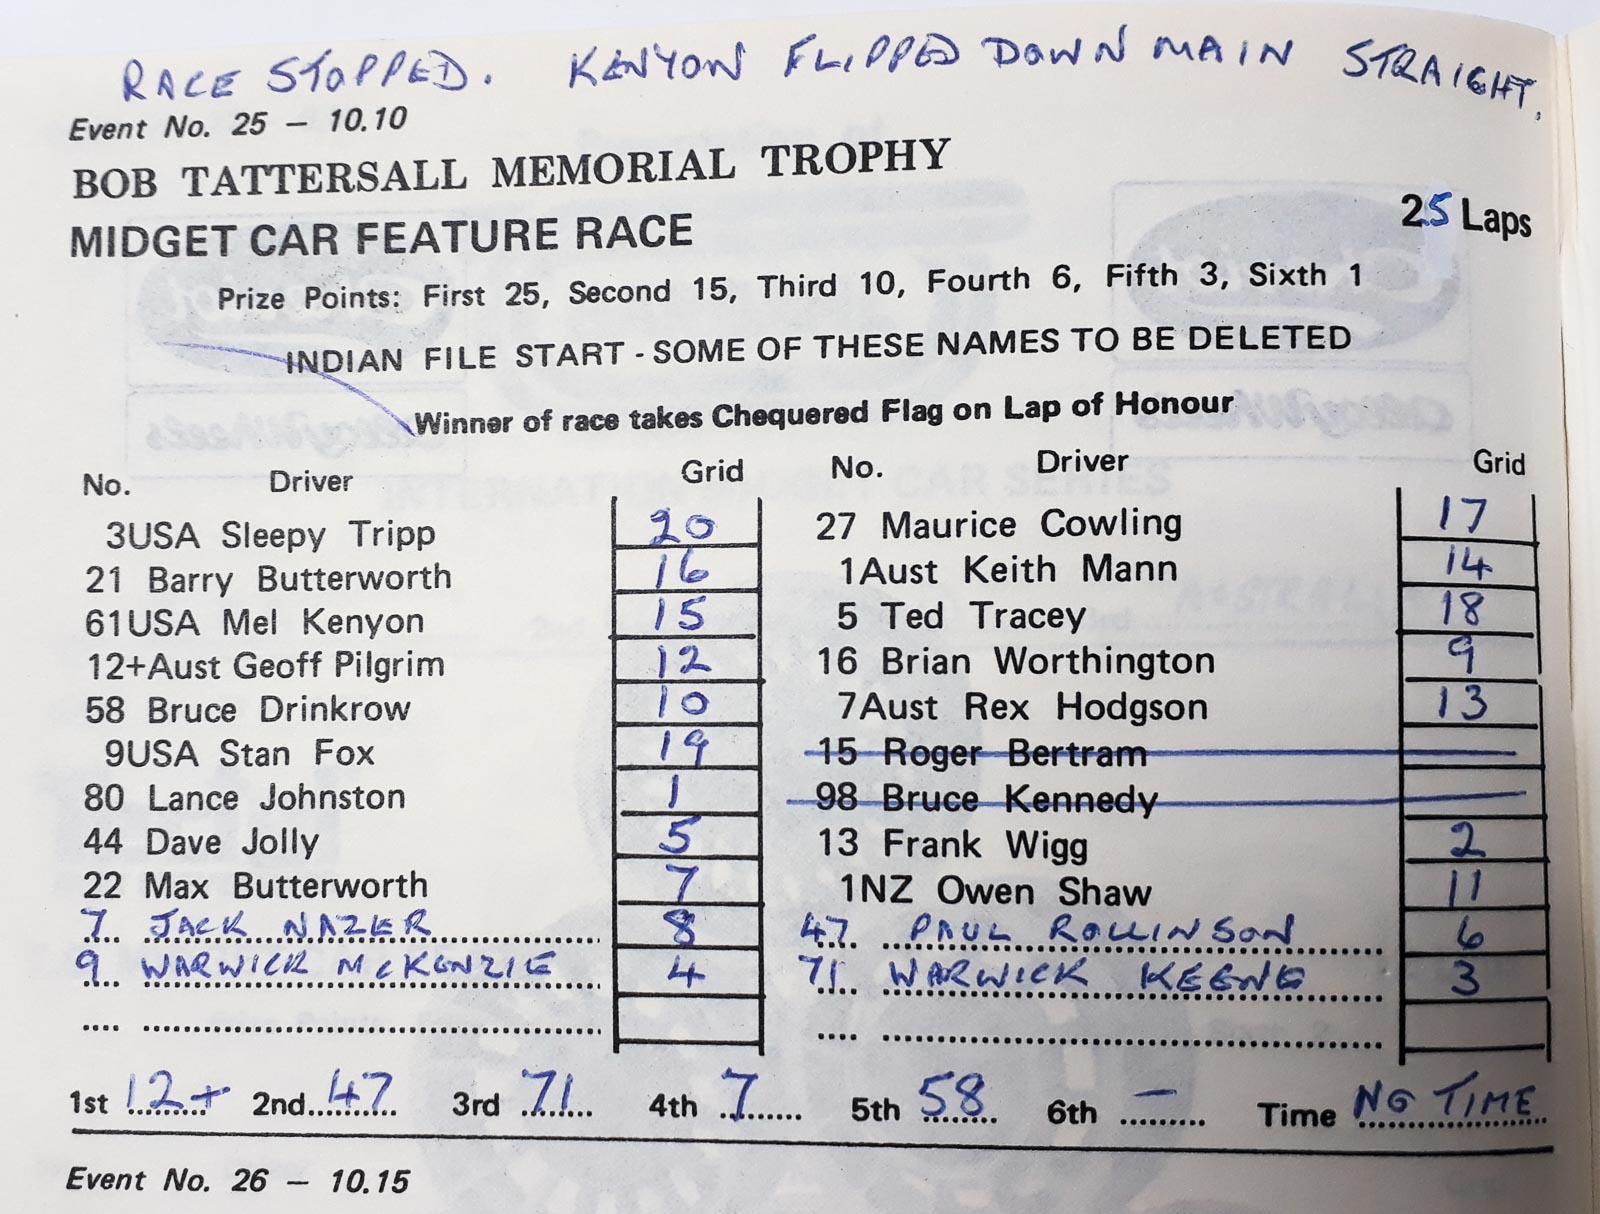 RACE STOPPED. KENYON FLIPPED DOWN MAIN STRAIGHT.
Event No. 25 – 10.10
BOB TATTERSALL MEMORIAL TROPHY
MIDGET CAR FEATURE RACE 25 Laps
Prize Points: First 25, Second 15, Third 10, Fourth 6, Fifth 3, Sixth 1
INDIAN FILE START - SOME OF THESE NAMES TO BE DELETED
Winner of race takes Chequered Flag on Lap of Honour
No. Driver Grid No. Driver Grid
3USA Sleepy Tripp 20 27 Maurice Cowling 17
21 Barry Butterworth 16 1Aust Keith Mann 14
61USA Mel Kenyon 15 5 Ted Tracey 18
12+Aust Geoff Pilgrim 12 16 Brian Worthington 9
58 Bruce Drinkrow 10 7Aust Rex Hodgson 13
9USA Stan Fox 19 15 Roger Bertram
80 Lance Johnston 1 98 Bruce Kennedy
44 Dave Jolly 5 13 Frank Wigg 2
22 Max Butterworth 7 1NZ Owen Shaw 11
7. JACK NAZER 8 47 PAUL ROLLINSON 6
9 WARWICK McKENZIE 4 71 WARWICK KEENE 3
1st 12+ 2nd 47 3rd 71 4th 7 5th 58 6th – Time NO TIME
Event No. 26 – 10.15